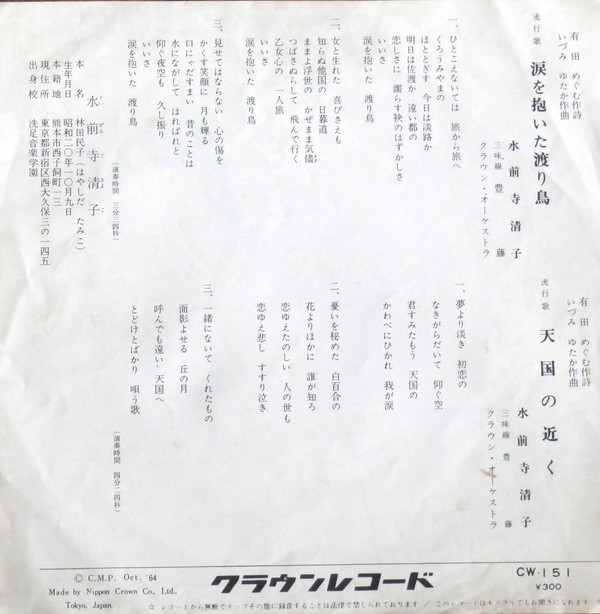 流行歌
涙を抱いた渡り鳥
有田めぐむ作詩
いづみゆたか作曲
水前寺清子
三味線 豊藤
クラウン・オーケストラ
一、ひとこえないては 旅から旅へ
くろうみやまの
ほととぎす 今日は淡路か
明日は佐渡か 遠い都の
恋しさに 濡らす袂のはずかしさ
いいさ
涙を抱いた 渡り鳥
二、女と生れた 喜びさえも
知らぬ他国の 日暮道
ままよ浮世の かぜまま気儘
つばさぬらして 飛んで行く
乙女心の 一人旅
いいさ
涙を抱いた 渡り鳥
三、見せてはならない 心の傷を
かくす笑顔に 月も輝る
口にゃだすまい 昔のことは
水にながして はればれと
仰ぐ夜空も 久し振り
いいさ
涙を抱いた 渡り鳥
(演奏時間 三分三四秒)
水前寺清子
すいぜんじきよこ
本名 林田民子(はやしだ たみこ)
生年月日 昭和二〇年一〇月九日
本籍地 熊本市西子飼町一三
現住所 東京都新宿区西大久保三の一四五
出身校 洗足音楽学園
流行歌
天国の近く
有田めぐむ作詩
いづみゆたか作曲
水前寺清子
三味線 豊藤
クラウン・オーケストラ
一、夢より淡き 初恋の
なきがらだいて 仰ぐ空
君すみたもう 天国の
かわべにひかれ 我が涙
二、憂いを秘めた 白百合の
花よりほかに 誰が知ろ
恋ゆえたのしい 人の世も
恋ゆえ悲し すすり泣き
三、一緒にないて くれたもの
面影よせる 丘の月
呼んでも遠い 天国へ
とどけとばかり 唄う歌
(演奏時間 四分二四秒)
Ⓒ C.M.P. Oct. '64
Made by Nippon Crown Co., Ltd.,
Tokyo, Japan.
クラウンレコード
CW-151
¥300
☆ レコードから無断でテープその他に録音することは法律で禁じられております.